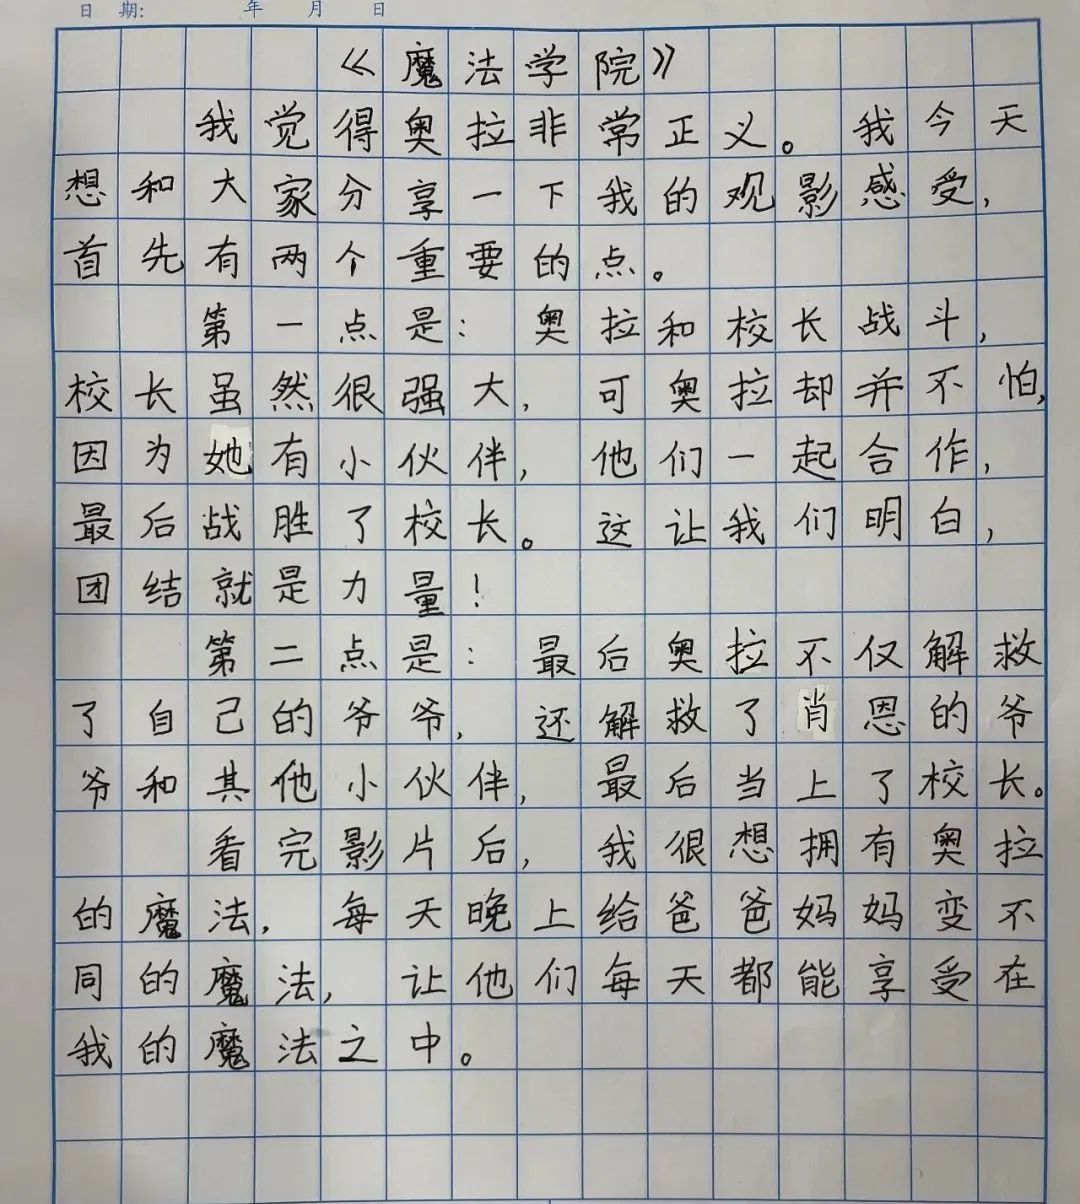 日 期: 年 月 日
《魔法学院》
我觉得奥拉非常正义。我今天
想和大家分享一下我的观影感受,
首先有两个重要的点。
第一点是:奥拉和校长战斗,
校长虽然很强大,可奥拉却并不怕,
因为她有小伙伴,他们一起合作,
最后战胜了校长。这让我们明白,
团结就是力量!
第二点是:最后奥拉不仅解救
了自己的爷爷,还解救了肖恩的爷
爷和其他小伙伴,最后当上了校长。
看完影片后,我很想拥有奥拉
的魔法,每天晚上给爸爸妈妈变不
同的魔法,让他们每天都能享受在
我的魔法之中。